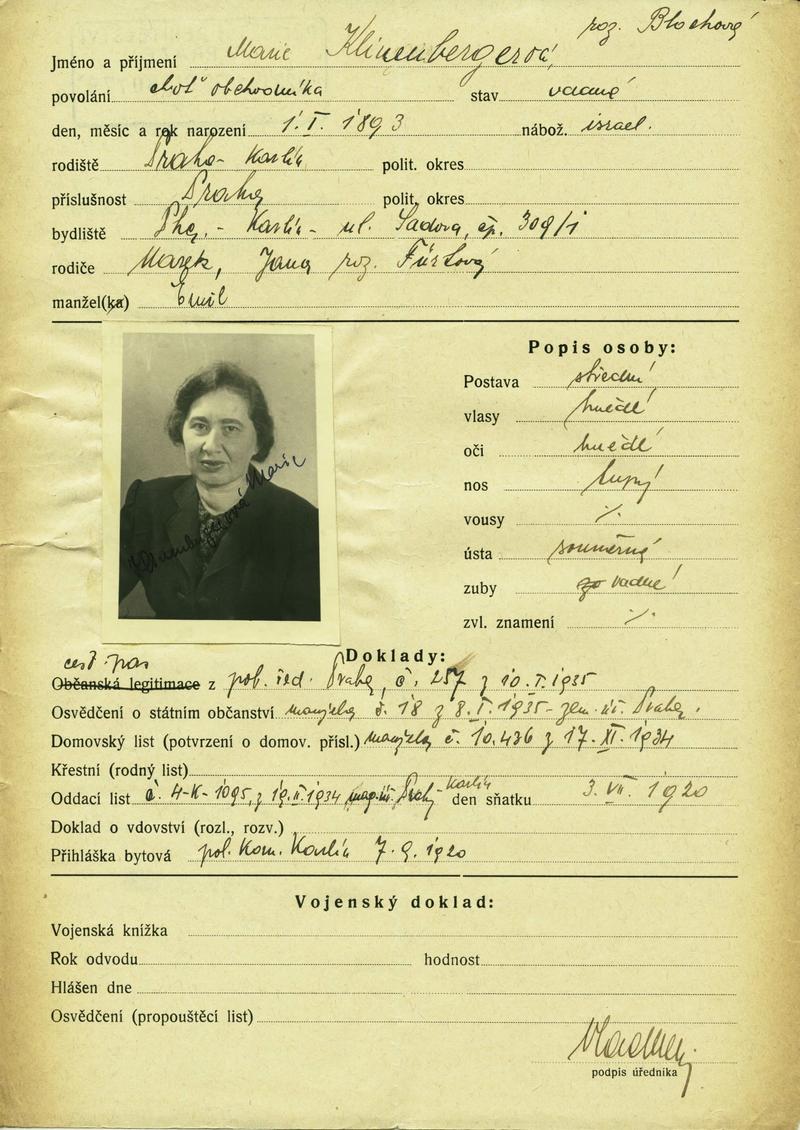 roz. Blochová
Jméno a příjmení Marie Klinenbergerová
povolání choť obchodníka stav vdaná
den, měsíc a rok narození 1. I. 1893 nábož. israel.
rodiště Praha - Karlín polit. okres
příslušnost Praha polit. okres
bydliště Pha, - Karlín - ul. Sadová, čp. 309/I
rodiče Marek, Jana roz. Fürthová
manžel(ka) Emil
Popis osoby:
Postava střední
vlasy hnědé
oči hnědé
nos tupý
vousy ·/·
ústa souměrná
zuby vadné
zvl. znamení ·/·
Marie
Doklady:
cest. pas
Občanská legitimace z pol. řed. Praha, č. 257 z 10. I. 1935
Osvědčení o státním občanství manžela č. 18 z 8. I. 1935 - zem. úř. Praha.
Domovský list (potvrzení o domov. přísl.) manžela č. 10.436 z 17. XI. 1934
Křestní (rodný list)
Karlín
Oddací list č. 4-K-1095, z 19. II. 1934 den sňatku 3. VII. 1920
Doklad o vdovství (rozl., rozv.)
Přihláška bytová pol. kom. Karlín 7. 9. 1920
Vojenský doklad:
Vojenská knížka
Rok odvodu hodnost
Hlášen dne
Osvědčení (propouštěcí list)
podpis úředníka